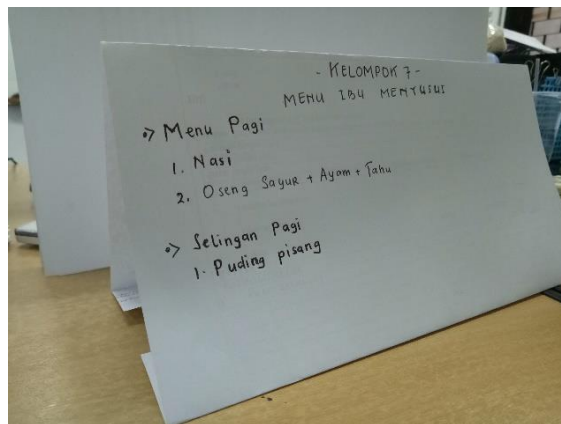 - KELOMPOK 7 -
MENU IBU MENYUSUI
•> Menu Pagi
1. Nasi
2. Oseng Sayur + Ayam + Tahu
•> Selingan Pagi
1. Puding pisang